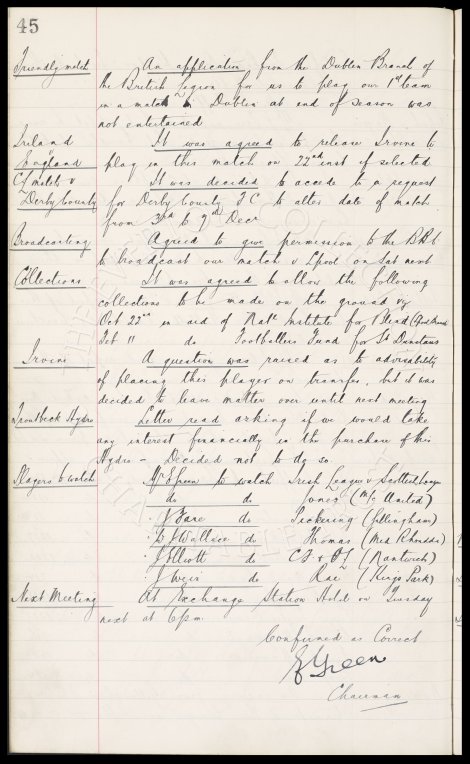 45
Friendly match An application from the Dublin Branch of
the British Legion for us to play our 1st team
in a match in Dublin at end of season was
not entertained
Ireland It was agreed to release Irvine to
England play in this match on 22nd inst if selected
C/f match v It was decided to accede to a request
Derby County for Derby County F.C. to alter date of match
from 3rd to 7th Decr
Broadcasting Agreed to give permission to the BBC
to broadcast our match v L'pool on Sat next
Collections It was agreed to allow the following
collections to be made on the ground viz
Oct 22nd in aid of Natl Institute for Blind
Feb 11 do Footballers Fund for St Dunstans
Irvine A question was raised as to advisability
of placing this player on transfer, but it was
decided to leave matter over until next meeting
Troutbeck Hydro Letter read asking if we would take
any interest financially in the purchase of this
Hydro - Decided not to do so.
Players to watch Mr Green to watch Irish League v Scottish League
do do Jones (M/c United)
" J Fare do Pickering (Gillingham)
" J Wallace do Thomas (Mid Rhondda)
" J Elliott do CF & OL (Nantwich)
" J Weir do Rae (Kings Park)
Next Meeting At Exchange Station Hotel on Tuesday
next at 6 pm
Confirmed as Correct
E Green
Chairman